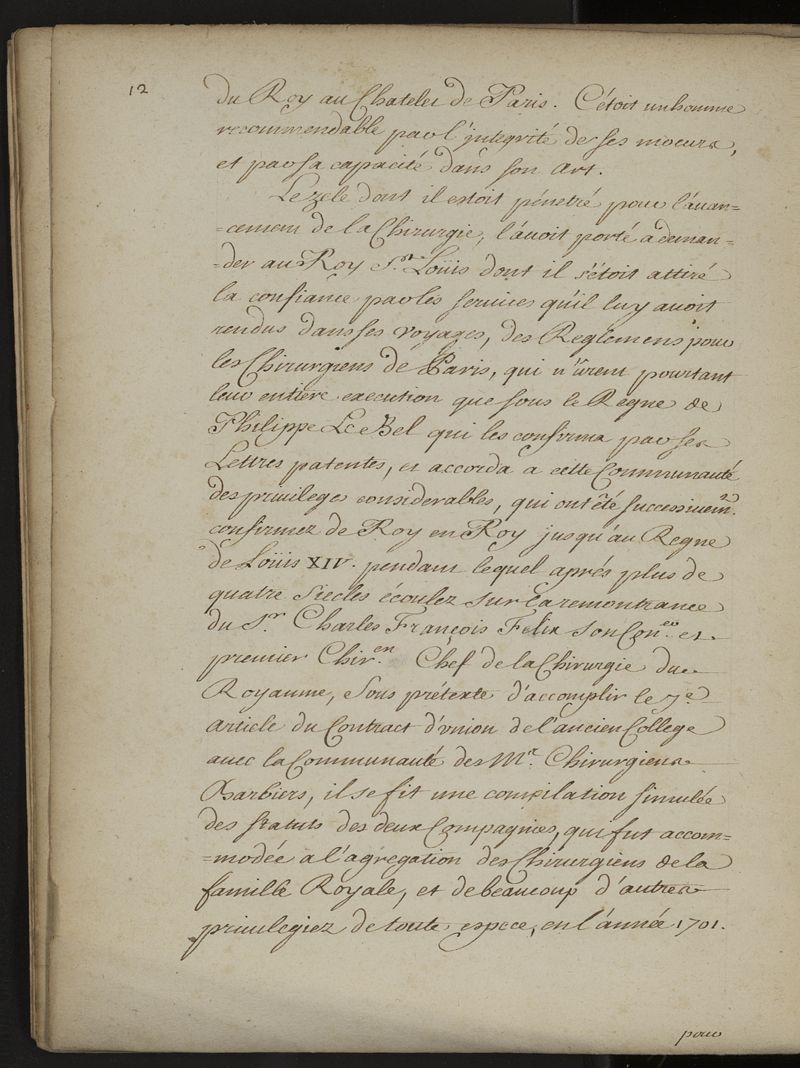 12
du Roy au Chatelet de Paris. C'étoit un homme
recommendable par l'integrité de ses moeurs,
et par sa capacité dans son art.
Le zele dont il estoit pénetré pour l'áuan=
=cement de la Chirurgie, l'áuoit porté a deman=
=der au Roy St. Loüis dont il s'étoit attiré
la confiance par les services qu'il luy auoit
rendus dans ses voyages, des Reglemens pour
les Chirurgiens de Paris, qui n'ûrent pourtant
leur entiere execution que sous le Regne de
Philippe Le Bel qui les confirma par ses
Lettres patentes, et accorda a cette Communauté
des privileges considerables, qui ont été successivemt.
confirmez de Roy en Roy jusqu'au Regne
de Loüis XIV. pendant lequel aprés plus de
quatre siecles écoulez sur la remontrance
du Sr. Charles François Felix son Coner. et
premier Chiren. Chef de la Chirurgie du
Royaume, sous prétexte d'accomplir le 7e.
article du Contract d'vnion de l'ancien College
auec la Communauté des Mes. Chirurgiens
Barbiers, il se fit une compilation simulée
des statuts des deux Compagnies, qui fut accom=
=modée a l'agregation des Chirurgiens de la
famille Royale, et de beaucoup d'autres
priuilegiez de toute espece, en l'année 1701.
pour